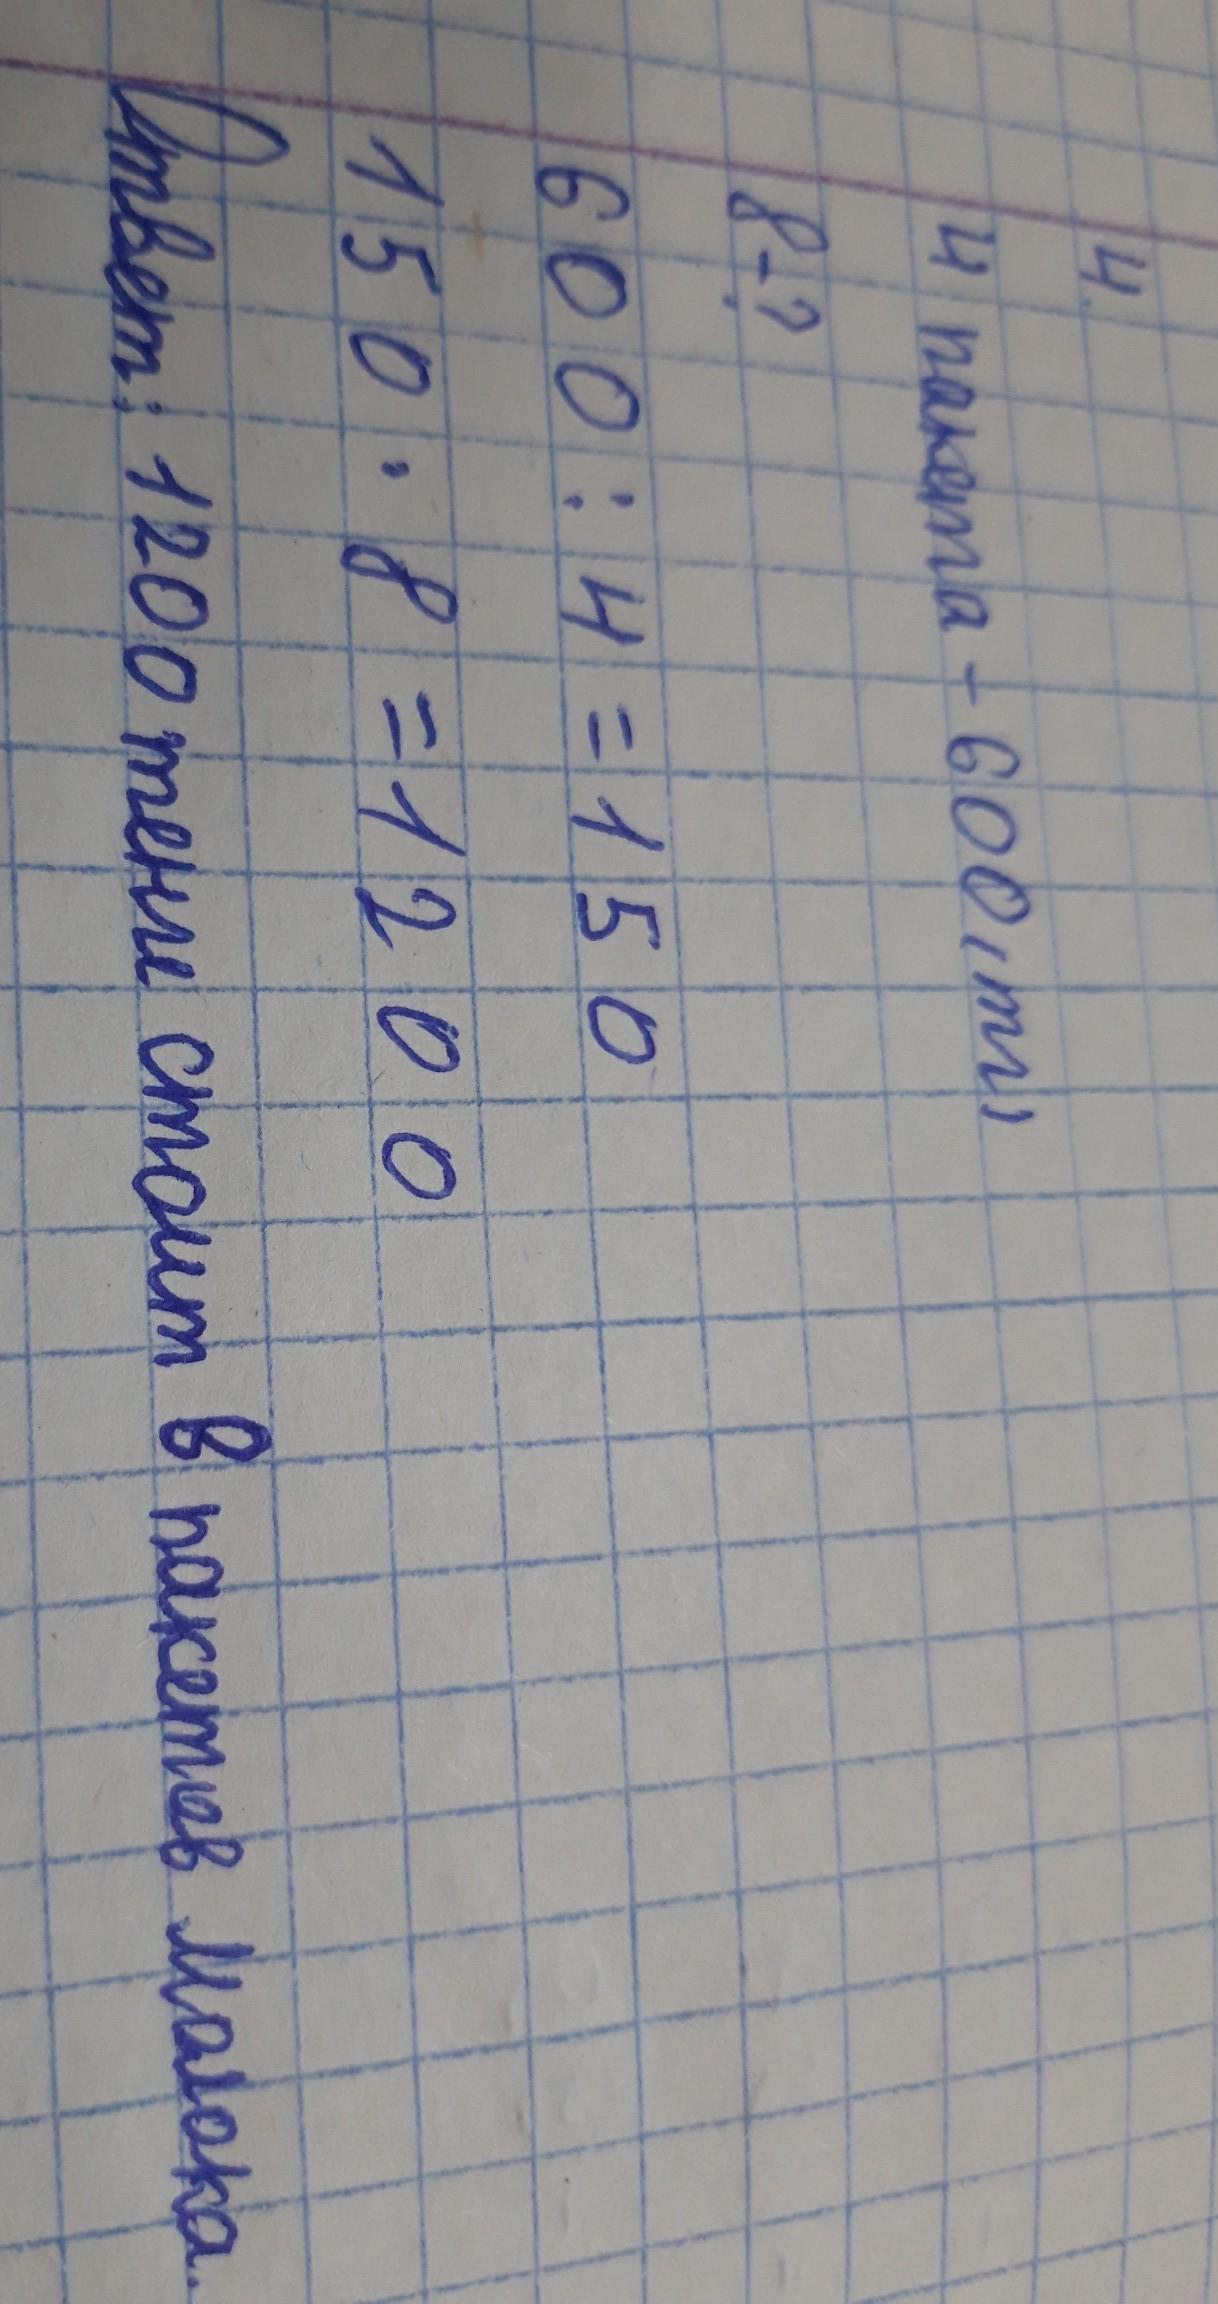 4.
4 пакета - 600(тг)
8-?
600:4=150
150·8=1200
Ответ: 1200 тенге стоит 8 пакетов малока.